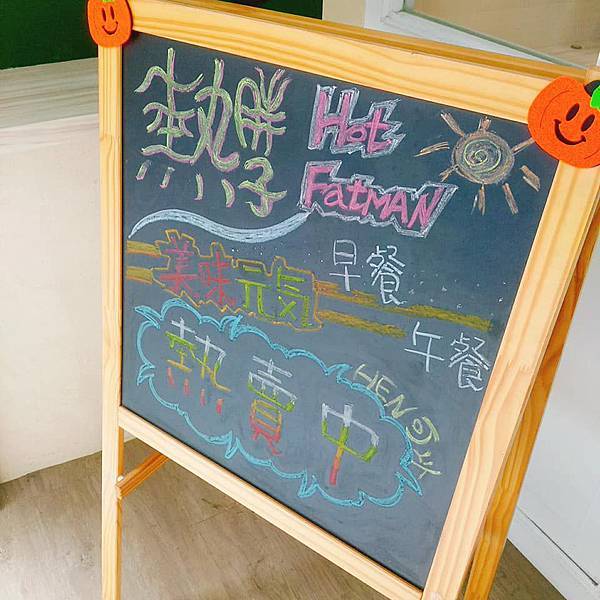 熱胖子 Hot
FatMAN
美味元気 早餐
午餐
熱賣中
HEN